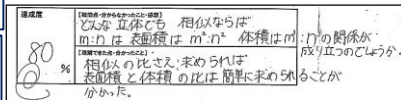 達成度
【疑問点・分からなかったこと・感想】
どんな立体でも 相似ならば
m:nは 表面積は m²:n² 体積は m³:n³の関係が
成り立つのでしょうか。
80
%
【理解できた点・分かったこと】
相似の比さえ求められれば
表面積と体積の比は簡単に求められることが
分かった。